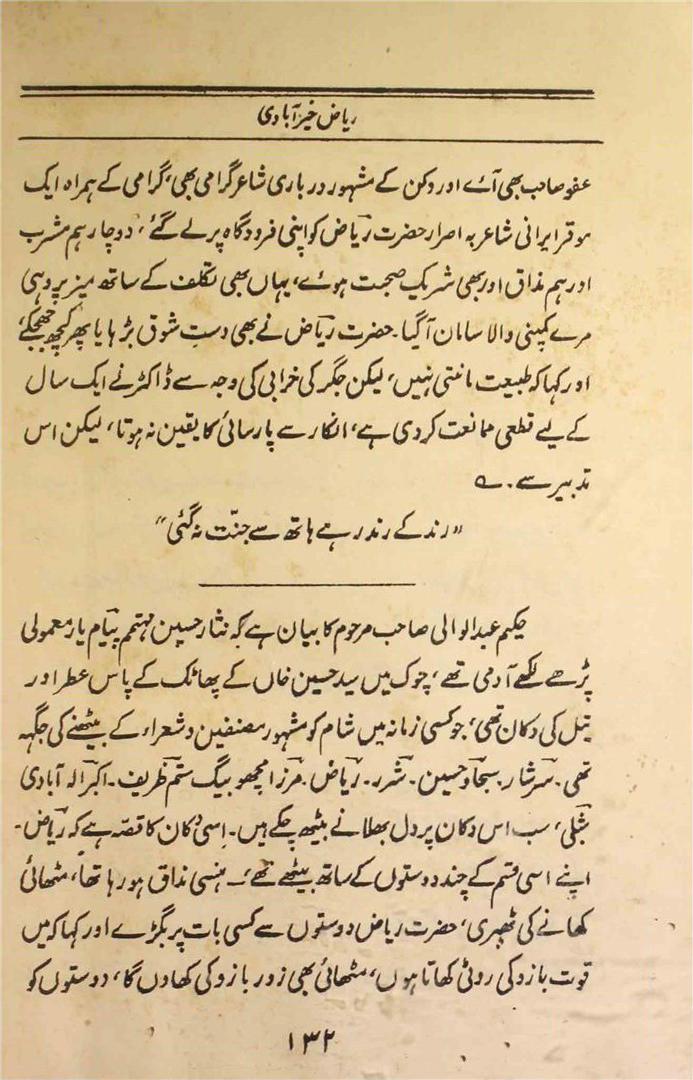 ریاض خیرآبادی
عفو صاحب بھی آئے اور دکن کے مشہور درباری شاعر گرامی بھی، گرامی کے ہمراہ ایک
موقر ایرانی شاعر بہ اصرار حضرت ریاؔض کو اپنی فرودگاہ پر لے گئے، دو چار ہم مشرب
اور ہم مذاق اور بھی شریک صحبت ہوئے، یہاں بھی تکلف کے ساتھ میز پر وہی
مرے کمپنی والا سامان آگیا۔ حضرت ریاؔض نے بھی دستِ شوق بڑہا یا پھر کچھ جھجکے،
اور کہا کہ طبیعت مانتی نہیں، لیکن جگر کی خرابی کی وجہ سے ڈاکٹر نے ایک سال
کے لیے قطعی ممانعت کر دی ہے، انکار سے پارسائی کا یقین نہ ہوتا، لیکن اس
تدبیر سے۔ ؎
"رند کے رند رہے ہاتھ سے جنّت نہ گئی"
حکیم عبدالوالی صاحب مرحوم کا بیان ہے کہ نثار حسین مہتمم پیام یار معمولی
پڑھے لکھے آدمی تھے، چوک میں سید حسین خاں کے پھاٹک کے پاس عطر اور
تیل کی دکان تھی، جو کسی زمانہ میں شام کو مشہور مصنفین و شعراء کے بیٹھنے کی جگہہ
تھی۔ سرؔشار۔ سجاؔد حسین۔ شرؔر۔ ریاؔض۔ مرزا مچھو بیگ ستمؔ ظریف۔ اکبرؔ الہ آبادی
شبلیؔ، سب اس دکان پر دل بھلانے بیٹھ چکے ہیں۔ اِسی دُکان کا قصّہ ہے کہ ریاؔض۔
اپنے اسی قسم کے چند دوستوں کے ساتھ بیٹھے تھے،۔ ہنسی مذاق ہو رہا تھا، مٹھائی
کھانے کی ٹھہری، حضرت ریاض دوستوں سے کسی بات پر بگڑے اور کہا کہ میں
قوت بازو کی روٹی کھاتا ہوں، مٹھائی بھی زور بازو کی کھاوں گا، دوستوں کو
۱۳۲